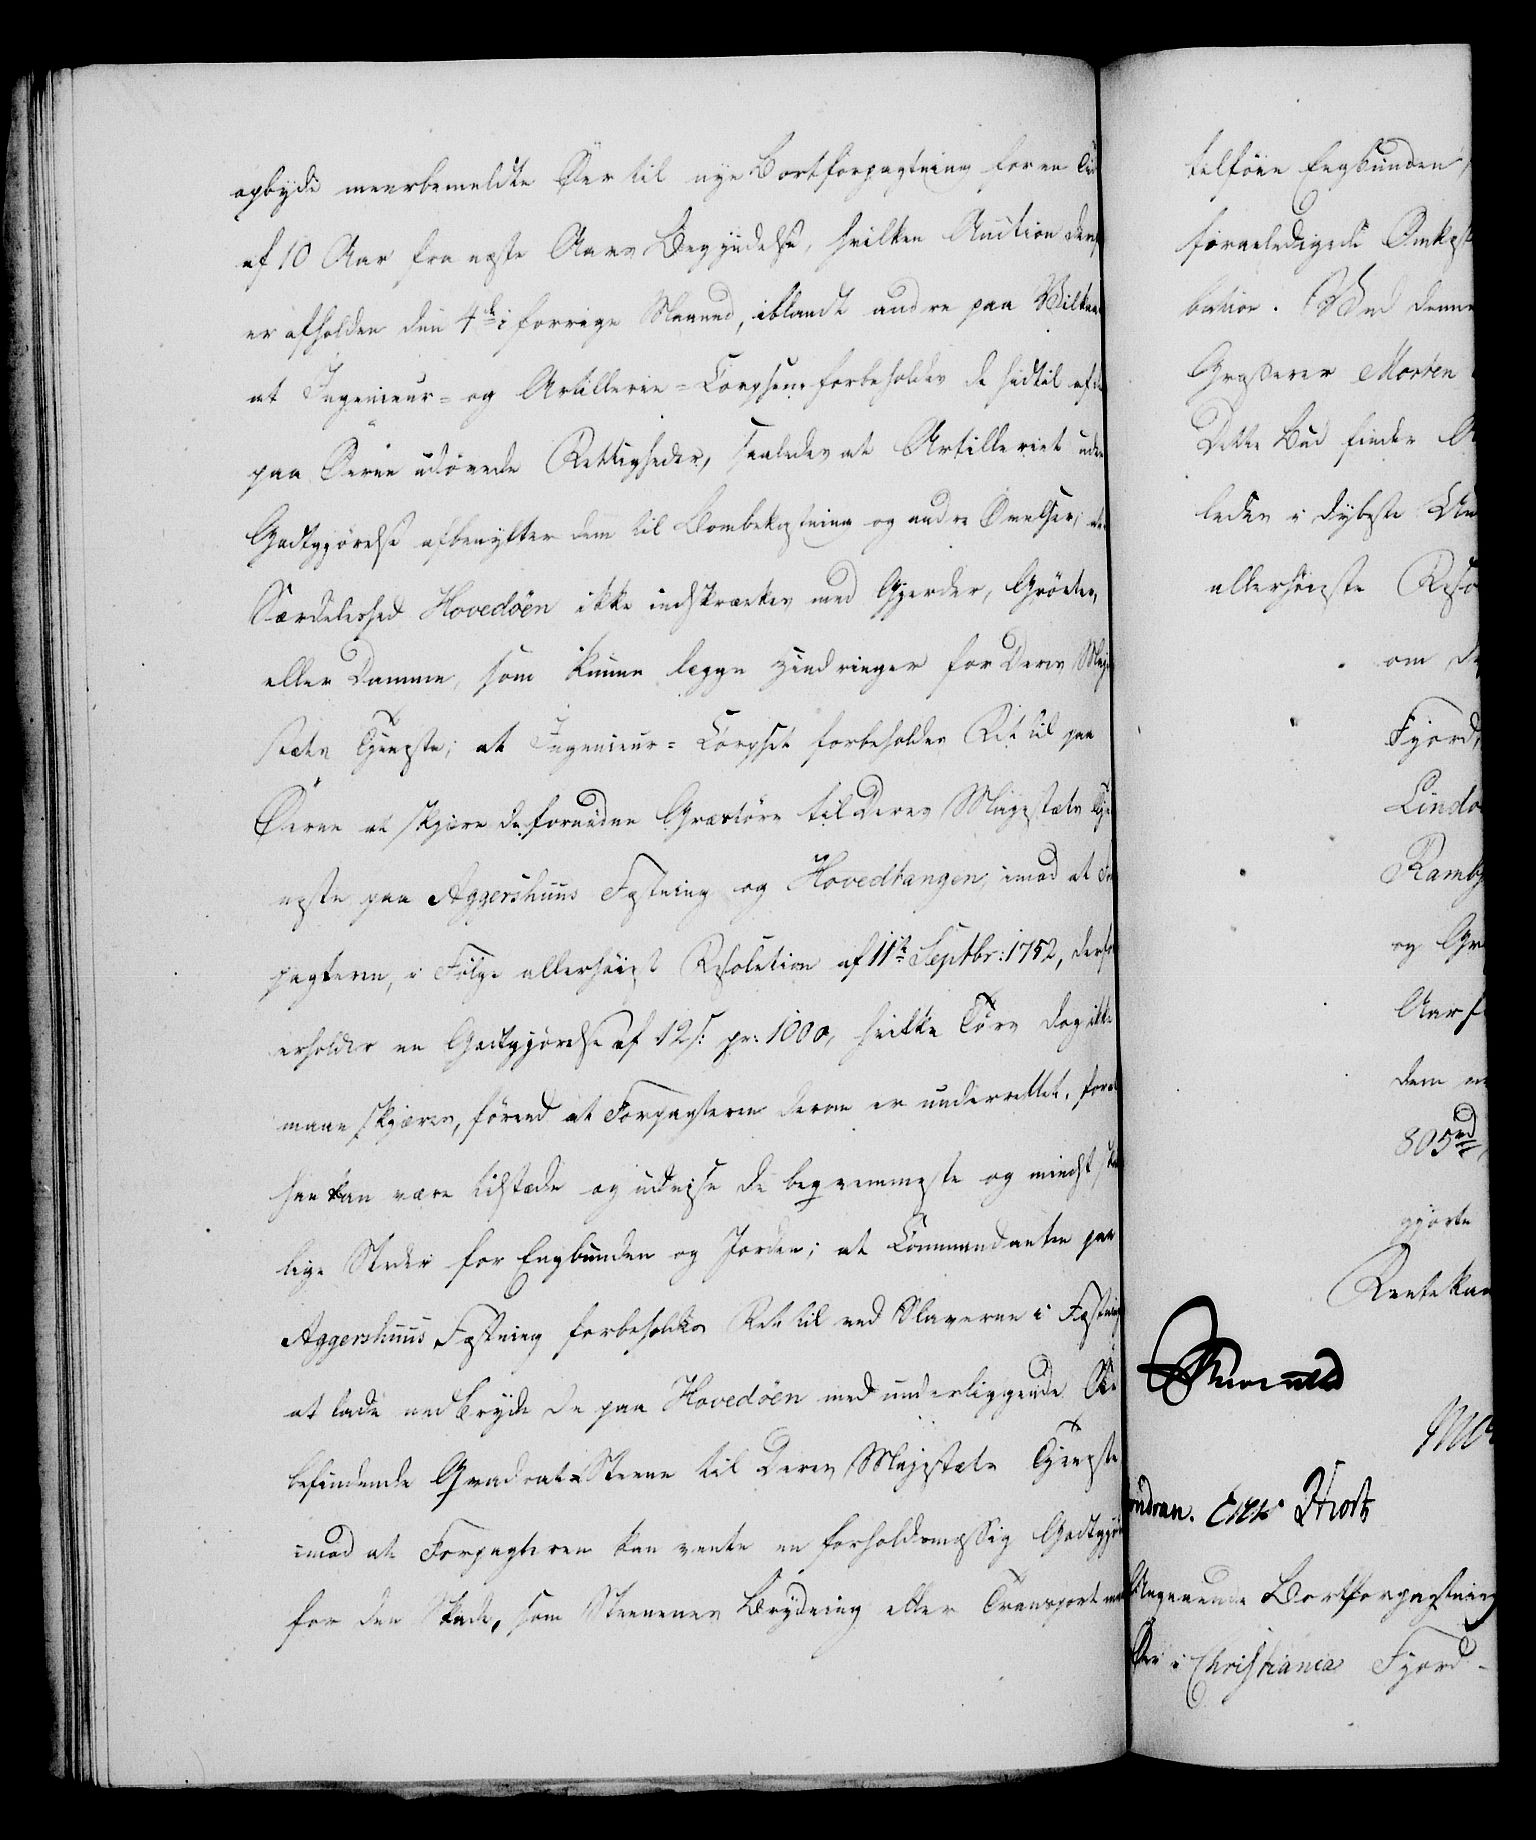 opbyde meerbemeldte Öer til nye Bortforpagtning for en Tid
af 10 Aar fra næste Aars Begyndelse, hvilken Auction derpaa
er afholden den 4de i forrige Maaned, iblandt andre paa Vilkaar
at Ingenieur- og Artillerie-Corpserne forbeholdes de hidtil af dem
paa Öerne udövede Rettigheder, saaledes at Artilleriet uden
Godtgjörelse afbenytter dem til Bombekastning og andre Övelser; at i
Særdeleshed Hovedöen ikke indskrænkes med Gjerder, Gröfter,
eller Damme, som kunne lægge Hindringer for Deres Maje-
stæts Tjeneste; at Ingenieur-Corpset forbeholdes Ret til paa
Öerne at skjære de fornödne Græstörv til Deres Majestæts Tje-
neste paa Aggershuus Fæstning og Hovedtangen, imod at For-
pagteren, i Fölge allerhöiest Resolution af 11te Septbr: 1752, derfor
erholder en Godtgjörelse af 12 s: pr: 1000, hvilke Törv dog ikke
maae skjæres, förend at Forpagteren derom er underrettet, for at
han kan være tilstæde og udvise de beqvemmeste og mindst skade-
lige Steder for Engbunden og Jorden; at Commandanten paa
Aggershuus Fæstning forbeholdes Ret til ved Slaverne i Fæstning
at lade nedbryde de paa Hovedöen med underliggende Öer
befindende Qvadrat-Steene til Deres Majestæts Tjeneste
imod at Forpagteren kan vente en forholdsmæssig Godtgjör
for den Skade, som Steenenes Brydning eller Transport
tilföie Engbunden,
foraeledigede Omkost
bation. Ved denne
Grosserer Morten
Dette Bud finder
ledes i dybeste Un
allerhöieste Reso
om de
Fjord,
Lindö
Ramb
og Gr
Aar f
dem
805 rd
gjorte
Rentekam
Mo
Hiort
Angaaende Bortforpagtning
Öer i Christiania Fjord.